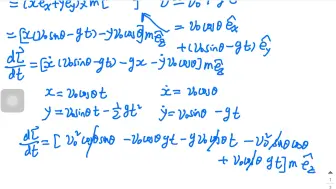 = (x ê_x + y ê_y) × m [
= v₀cosθ ê_x
= [x(v₀sinθ - gt) - y v₀cosθ] m ê_z
+ (v₀sinθ - gt) ê_y
dL⃗/dt = [ẋ(v₀sinθ - gt) - gx - ẏ v₀cosθ] m ê_z
x = v₀cosθt ẋ = v₀cosθ
y = v₀sinθt - ½gt² ẏ = v₀sinθ - gt
dL⃗/dt = [v₀²cosθsinθ - v₀cosθ gt - g v₀cosθt - v₀²sinθcosθ
+ v₀cosθ gt] m ê_z